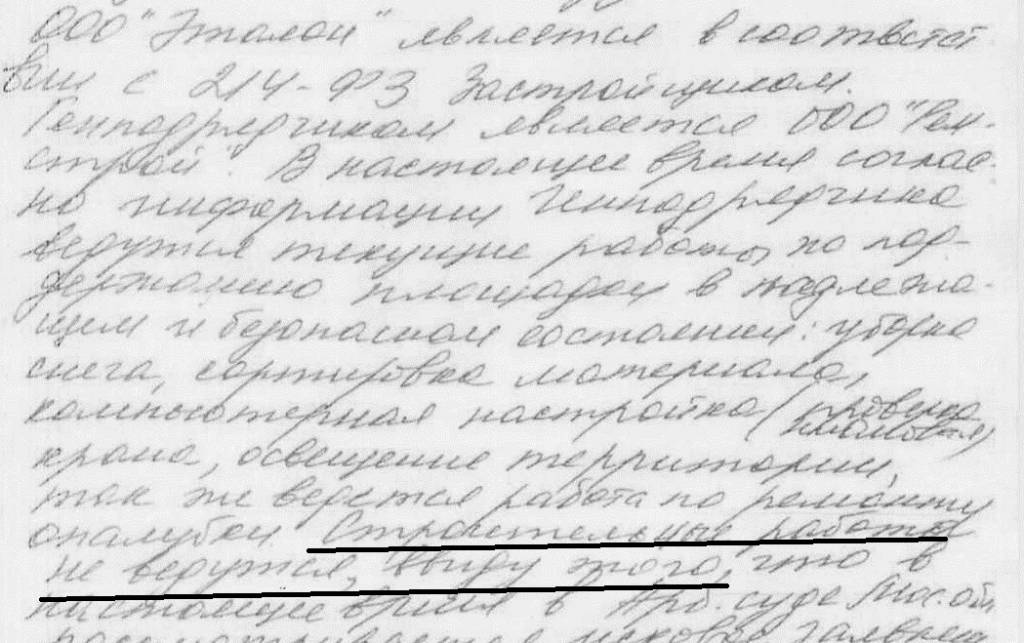 ООО "Эталон" является в соответст
вии с 214-ФЗ Застройщиком.
Генподрядчиком является ООО "Рем-
строй". В настоящее время соглас-
но информации Генподрядчика
ведутся текущие работы по под-
держанию площадки в надлежа-
щем и безопасном состоянии: уборка
снега, сортировка материала,
компьютерная настройка (проверка
плановая)
крана, освещение территории,
так же ведется работа по ремонту
опалубки. Строительные работы
не ведутся, ввиду того, что в
настоящее время в Арб. суде Мос. обл.
рассматривается исковое заявлен